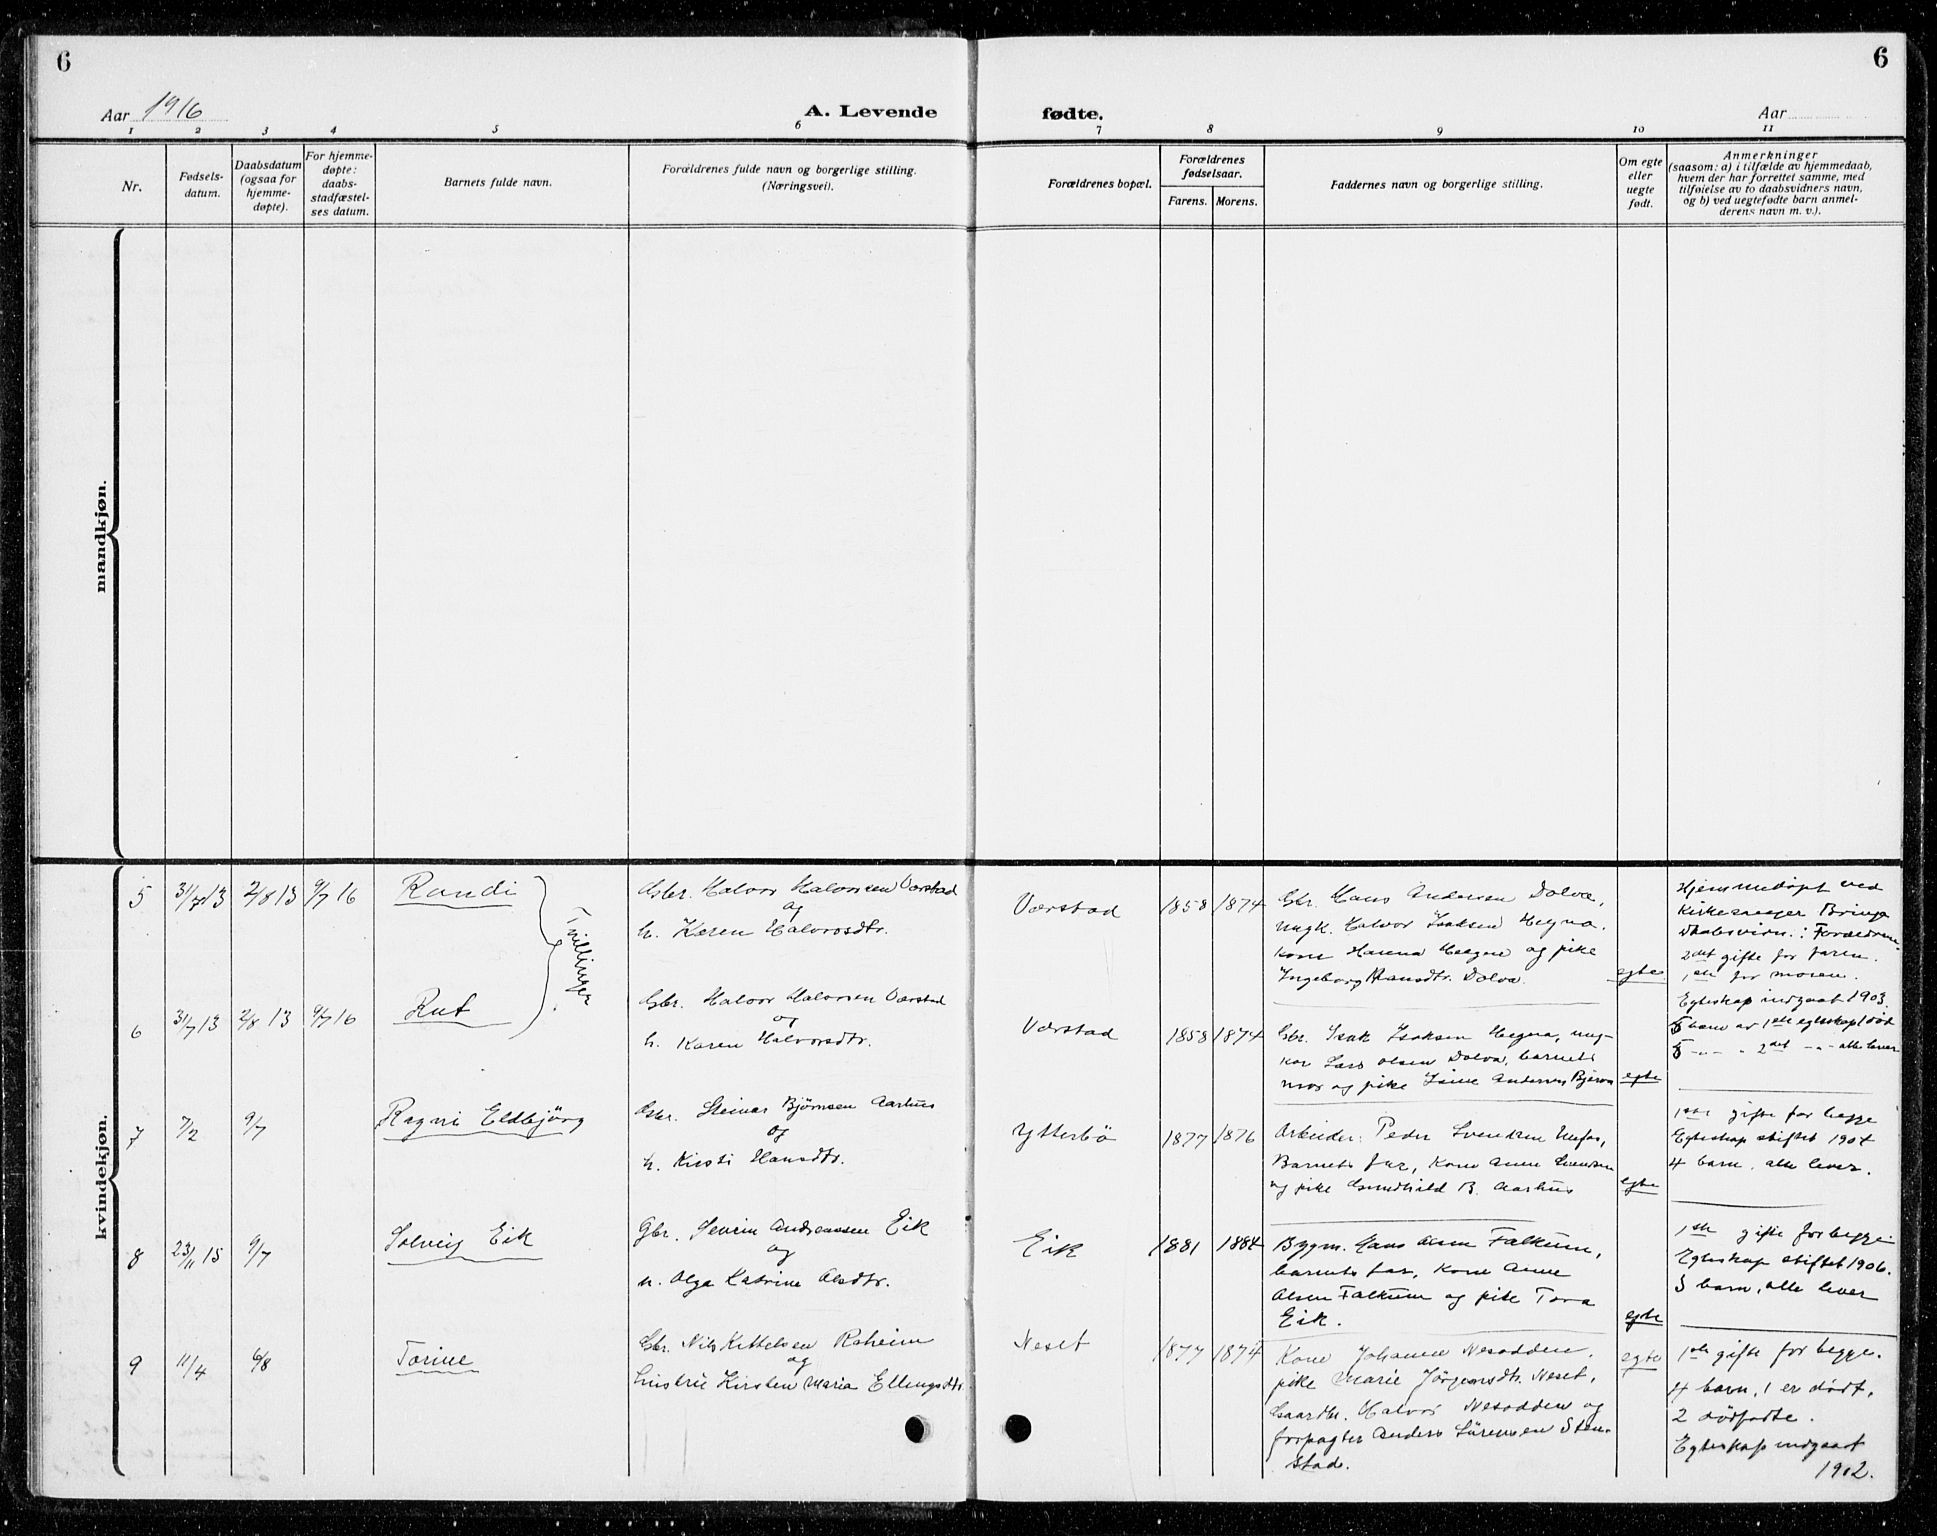 6
6
Aar 1916
A. Levende
fødte.
Aar
1 2 3 4 5 6 7 8 9 10 11
Nr.
Fødsels-
datum.
Daabsdatum
(ogsaa for
hjemme-
døpte).
For hjemme-
døpte:
daabs-
stadfæstel-
ses datum.
Barnets fulde navn.
Forældrenes fulde navn og borgerlige stilling.
(Næringsvei).
Forældrenes bopæl.
Forældrenes
fødselsaar.
Farens. Morens.
Faddernes navn og borgerlige stilling.
Om egte
eller
uegte
født.
Anmerkninger
(saasom: a) i tilfælde av hjemmedaab,
hvem der har forrettet samme, med
tilføielse av to daabsvidners navn,
og b) ved uegtefødte barn anmel-
derens navn m. v.).
mandkjøn.
kvindekjøn.
5 31/7 13 2/8 13 9/7 16 Randi
Gbr. Halvor Halvorsen Værstad
og
h. Karen Halvorsdtr.
Værstad 1858 1874
Gbr. Hans Andersen Dolva,
ungk. Halvor Isaksen Hegna.
kone Hanna Hegna og pike
Ingeborg Hansdtr. Dolva.
egte
Hjemmedøpt ved
Kirkesanger Bringe
Daabsvidn.: Forældrene.
2det gifte for faren.
1ste for moren.
Egteskap indgaat 1903.
barn av 1ste egteskap 1 død
2det alle lever
Tvillinger
6 31/7 13 2/8 13 9/7 16 Rut
Gbr. Halvor Halvorsen Værstad
og
h. Karen Halvorsdtr.
Værstad 1858 1874
Gbr. Isak Isaksen Hegna, ung-
kar Lars Olsen Dolva, barnets
mor og pike Andersen
egte
7 7/2 9/7 Ragni Eldbjörg
Gbr. Steinar Bjørnsen Aarhus
og
h. Kirsti Hansdtr.
Ytterbö 1877 1876
Arbeider: Peder Svendsen Ulefos,
Barnets far, Kone Anne Svendsen
og pike Gundhild B. Aarhus
egte
1ste gifte for begge
Egteskap stiftet 1904
4 barn, alle lever.
8 23/11 15 9/7 Solveig Eik
Gbr. Severin Andreassen Eik
og
h. Olga Katrine Olsdtr.
Eik 1881 1884
Bygm. Hans Olsen Falkum,
barnets far, Kone Anne
Olsen Falkum og pike Tora
Eik.
egte
1ste gifte for begge.
Egteskap stiftet 1906.
5 barn, alle lever
9 11/4 6/8 Torine
Gbr. Nils Kittelsen Raheim
og
hustru Kirsten Maria Ellingsdtr.
Neset 1877 1874
Kone Johanne Nesodden,
pike Marie Jörgensdtr. Neset,
Gaardbr. Halvor Nesodden og
forpagter Anders Sörensen Sten-
stad.
egte
1ste gifte for begge.
4 barn, 1 er dødt,
2 dødfødte.
Egteskap indgaat
1902.